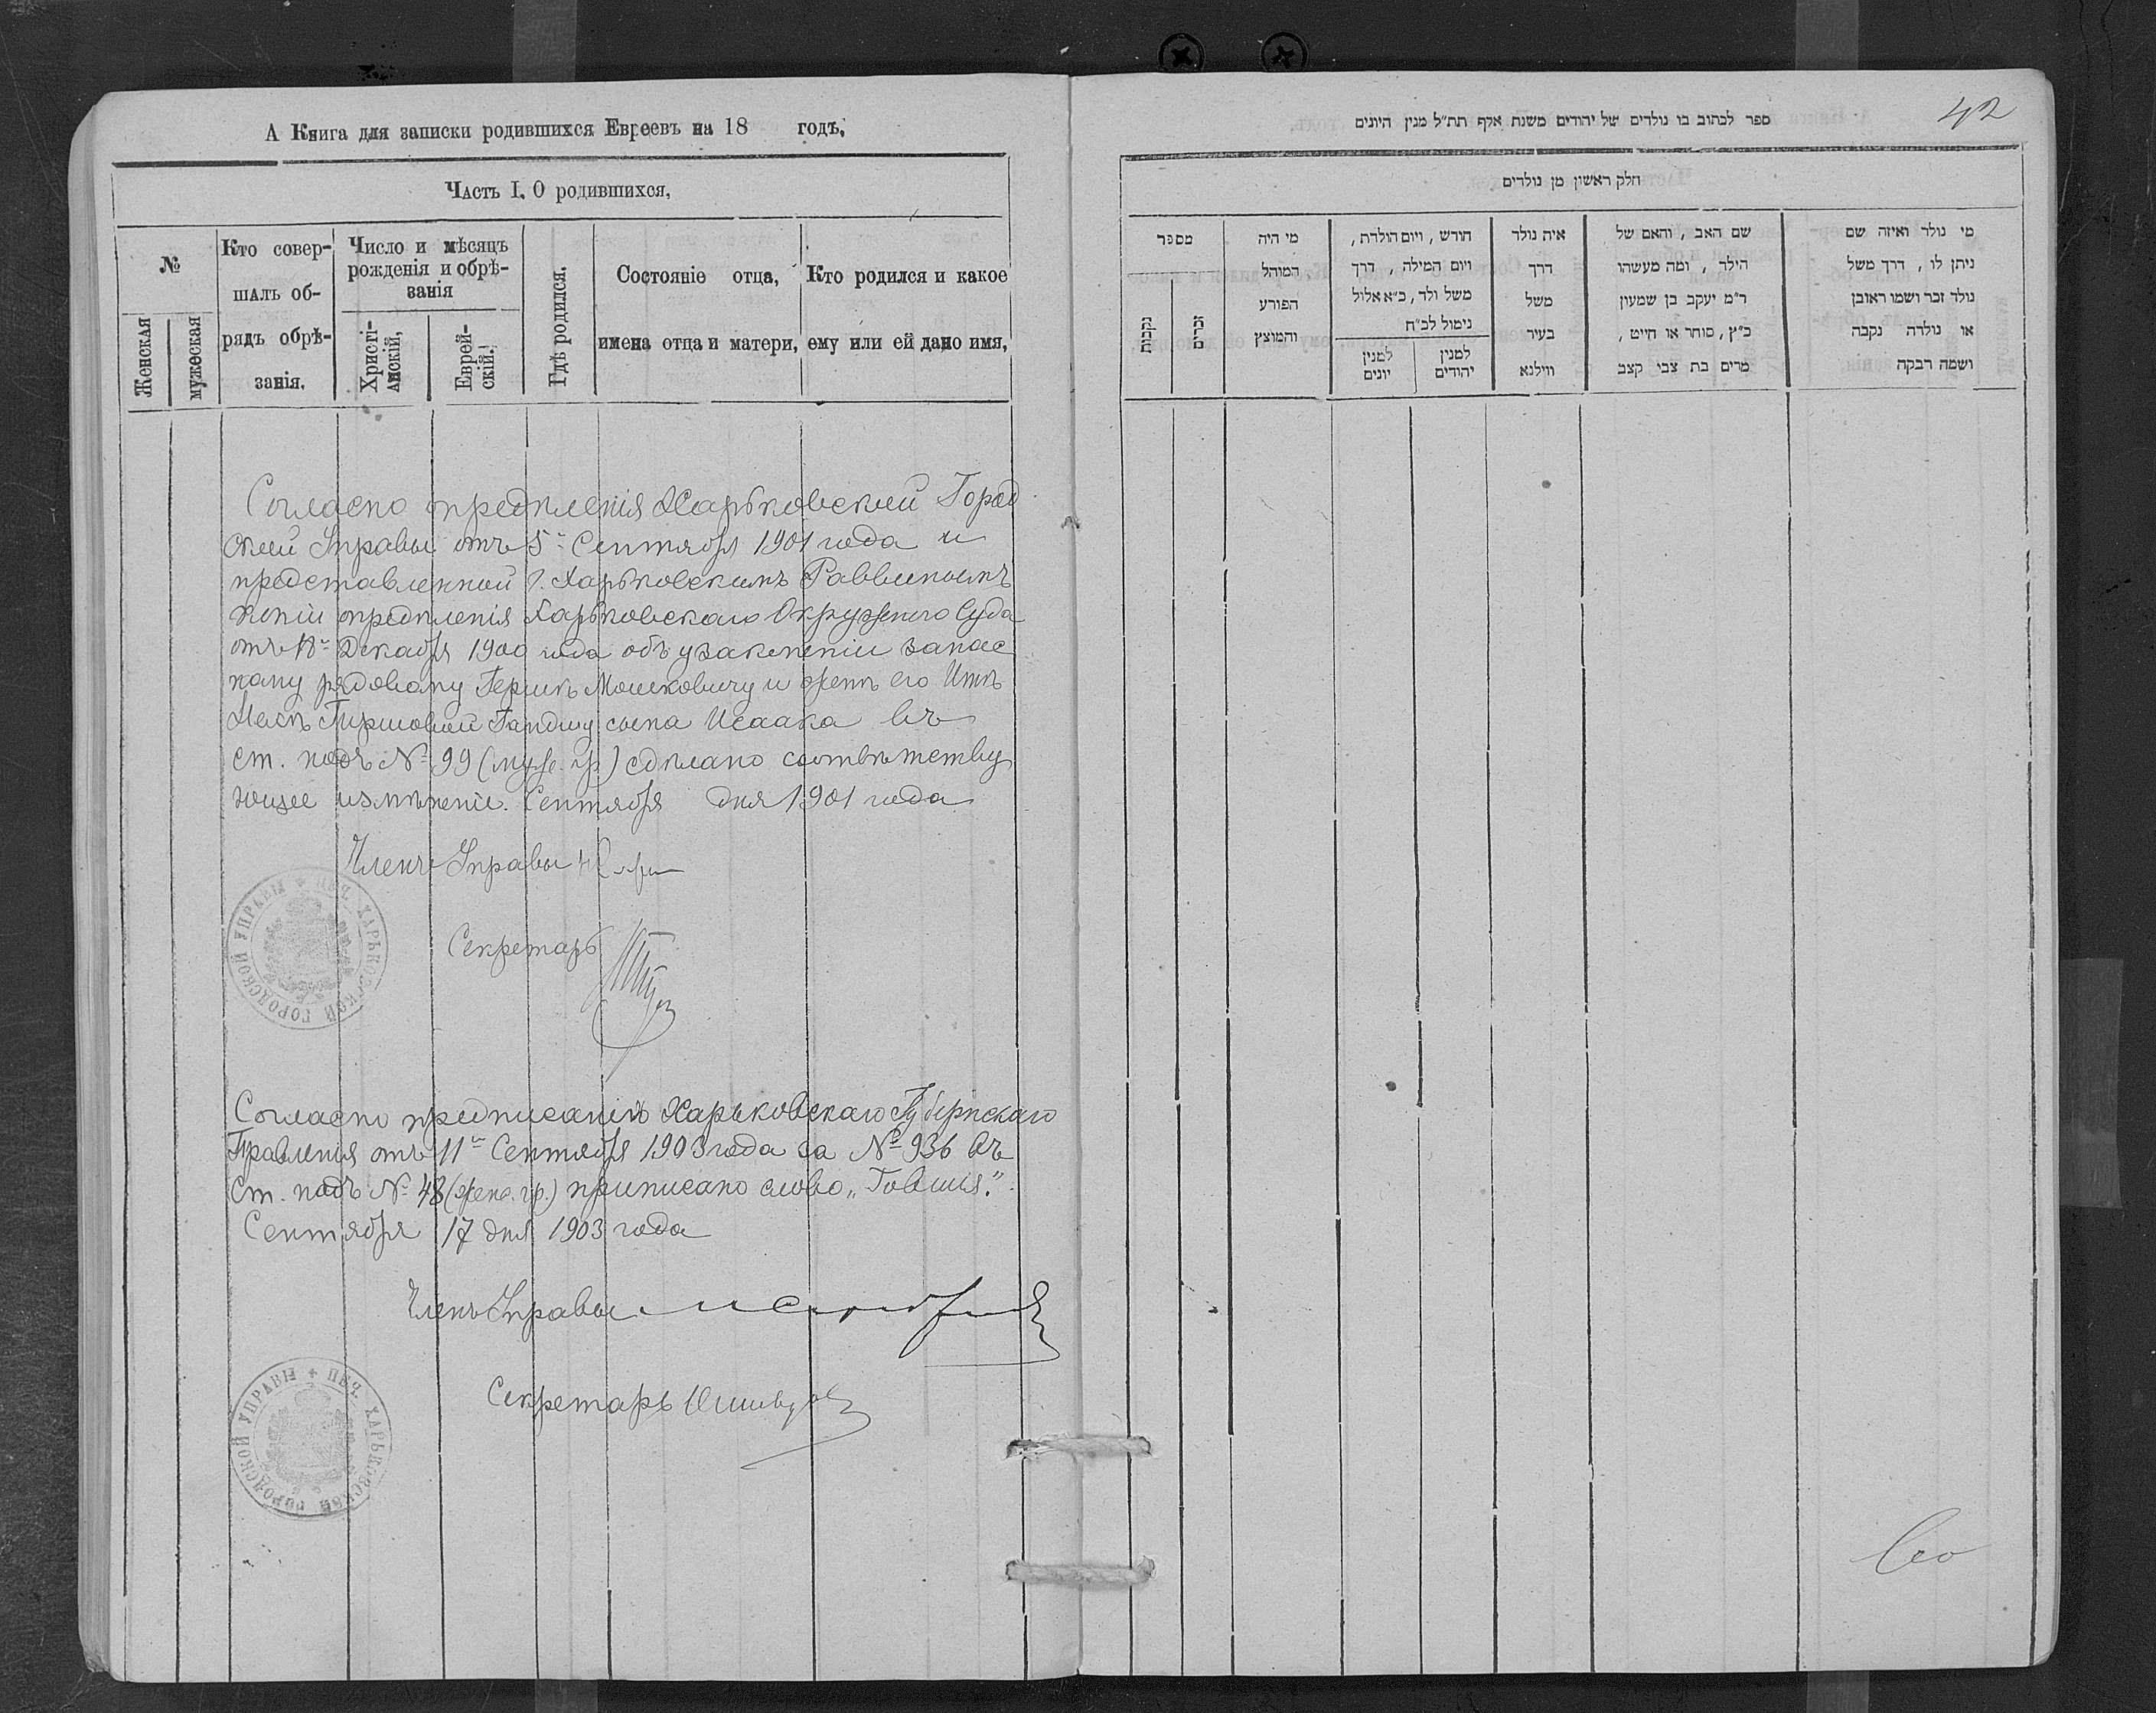 А Книга для записки родившихся Евреевъ на 18 годъ.
Часть I. О родившихся,
№
Женская
мужеская
Кто совер-
шалъ об-
рядъ обрѣ-
занія.
Число и мѣсяцъ
рожденія и обрѣ-
занія
Христі-
анскій,
Еврей-
скій.
Гдѣ родился.
Состояніе отца,
имена отца и матери,
Кто родился и какое
ему или ей дано имя,
Согласно опредѣленія Харьковской Город
ской Управы отъ 5го Сентября 1901 года и
представленной г. Харьковскимъ Раввиномъ
копіи опредѣленія Харьковскаго Окружного Суда
отъ Декабря 1900 года объ узаконеніи запас
ному рядовому Гершк Мошковичу и женѣ его
Гиршовой сына Исаака въ
ст. подъ № 99 (муж. гр.) сдѣлано соотвѣтству
ющее измѣненіе. Сентября дня 1901 года
Членъ Управы
Секретарь
ПЕЧ. ХАРЬКОВСКОЙ ГОРОДСКОЙ УПРАВЫ
Согласно предписанія Харьковскаго Губернскаго
Правленія отъ 11го Сентября 1903 года за № 936 въ
ст. подъ № 48 (женс. гр.) приписано слово „Товшія."
Сентября 17 дня 1903 года
Членъ Управы
Секретарь
ПЕЧ. ХАРЬКОВСКОЙ ГОРОДСКОЙ УПРАВЫ
42
ספר לכתוב בו נולדים של יהודים משנת אלף תת״ל מנין היונים
חלק ראשון מן נולדים
מי נולד ואיזה שם
ניתן לו , דרך משל
נולד זכר ושמו ראובן
או נולדה נקבה
ושמה רבקה
שם האב , והאם של
הילד , ומה מעשהו
ר״מ יעקב בן שמעון
כ״ץ , סוחר או חייט ,
מרים בת צבי קצב
איה נולד
דרך
משל
בעיר
ווילנא
חודש , ויום הולדת ,
ויום המילה , דרך
משל ולד , כ״א אלול
נימול לכ״ח
למנין
יהודים
למנין
יונים
מי היה
המוהל
הפורע
והמוצץ
מספר
זכרים
נקבות